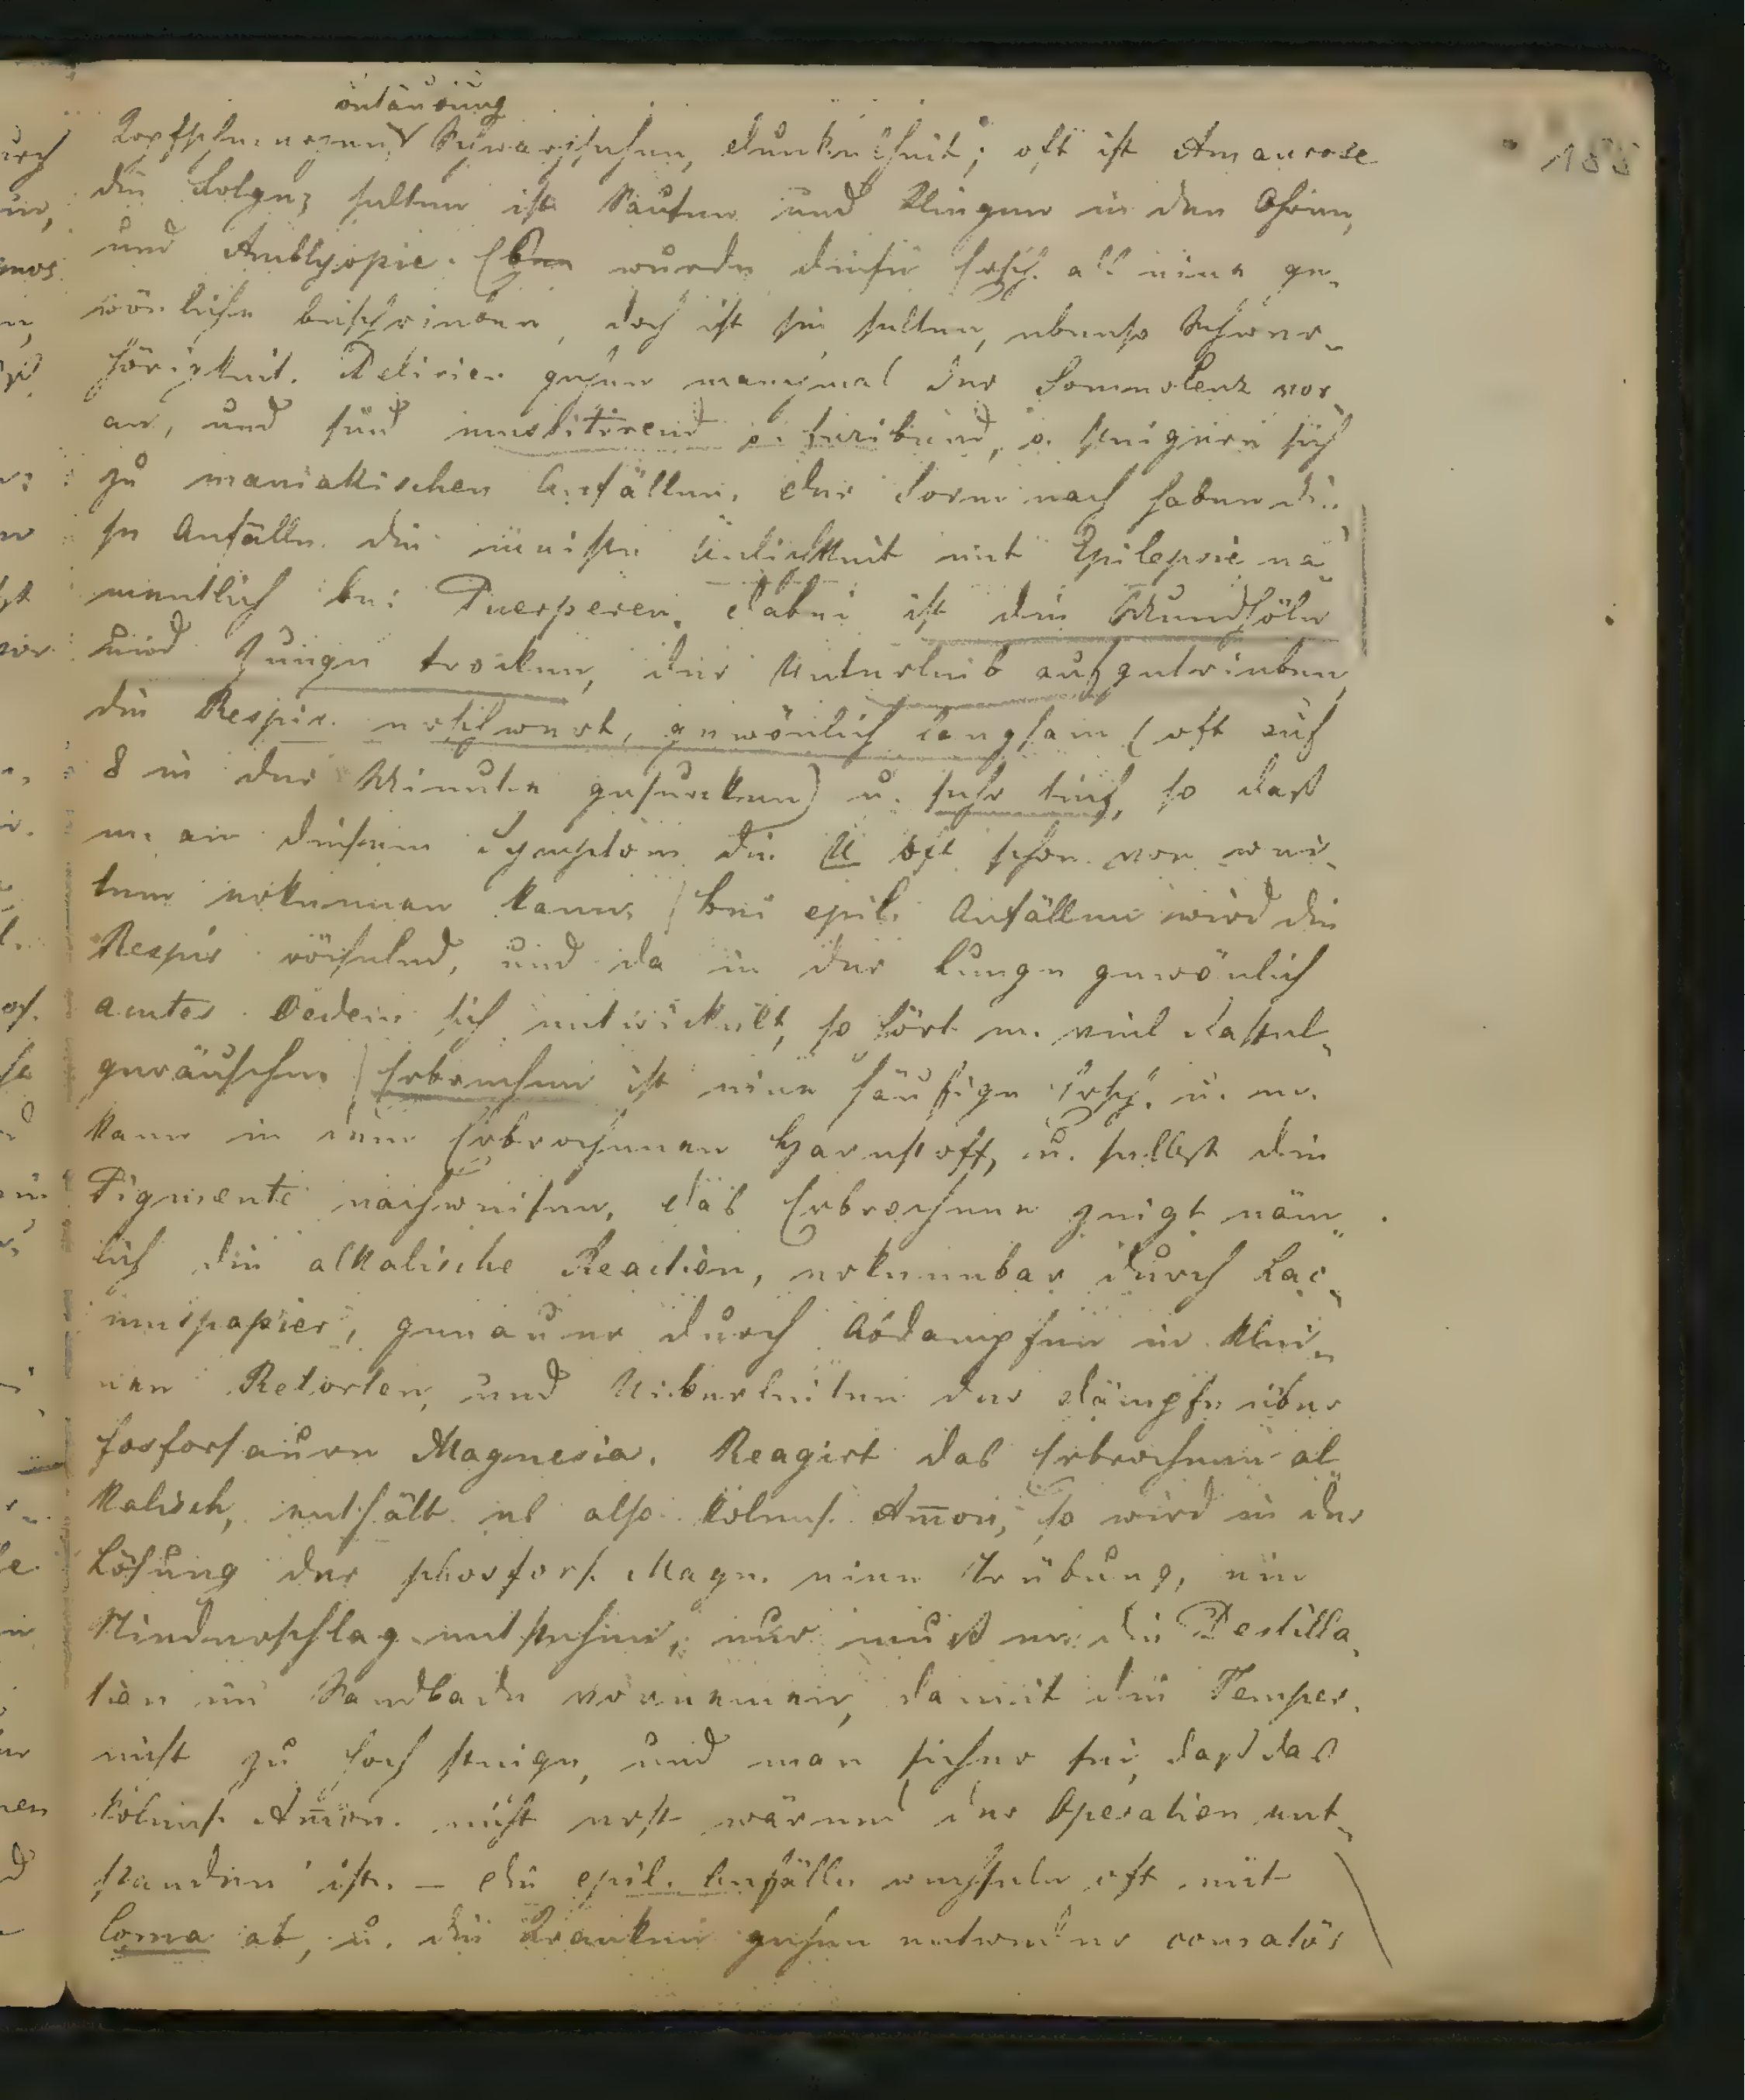 155
Kopfschmerzen, Schwarzsehen, Dunkelheit; oft ist Amaurose
die Folge; selten ist Sausen und Klingen in den Ohren,
und Amblyopie. wurde diese Ersch. als eine ge-
wönliche beschrieben, doch ist sie selten, ebenso Schwer-
hörigkeit. Delirien gehen manchmal der Somnolenz vor-
an, und sind mussitirend o. furibund, o. steigern sich
zu maniakischen Anfällen. Der Form nach haben die-
se Anfälle die meiste Änlichkeit mit Epilepsie na-
mentlich bei Puerperen. Dabei ist die Mundhöle
und Zunge trocken, der Unterleib aufgetrieben,
die Respir. erschwert, gewönlich langsam (oft auf
8 in der Minute gesunken) u. sehr tief, so daß
m. an diesem Symptom die U oft schon von wei-
tem erkennen kann. Bei epil. Anfällen wird die
Respir röchelnd, und da in der Lunge gewönlich
acutes Oedem sich entwickelt, so hört m. viel Rassel-
geräusche. Erbrechen ist eine häufige Ersch. u. m.
kann in dem Erbrochenen Harnstoff, u. selbst die
Pigmente nachweisen. Das Erbrochene zeigt näm-
lich die alkalische Reaction, erkennbar durch Lac-
muspapier, genauer durch Abdampfen in klei-
nen Retorten, und Ueberleiten der Dämpfe über
fosforsaure Magnesia. Reagirt das Erbrochene al-
kalisch, enthält es also kolens. Am̄on, so wird in der
Lösung der phosfors. Magn. eine Trübung, ein
Niederschlag entstehen, nur muß m. die Destilla-
tion im Sandbade vornemen, damit die Temper.
nicht zu hoch steige, und man sicher sei, daß das
kolens. Am̄on. nicht erst wärend der Operation ent-
standen ist. – Die epil. Anfälle wechseln oft mit
Coma ab, u. die Kranken gehen entweder comatös